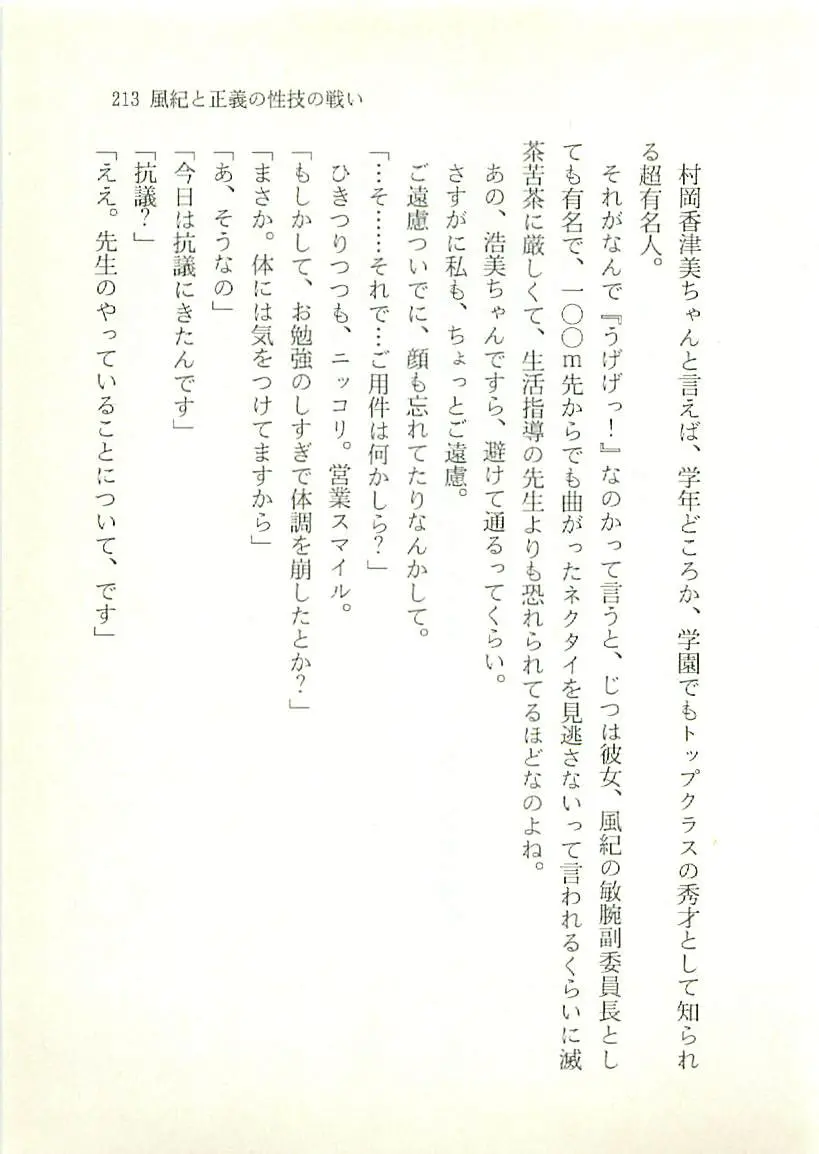 213 風紀と正義の性技の戦い
村岡香津美ちゃんと言えば、学年どころか、学園でもトップクラスの秀才として知られ
る超有名人。
それがなんで『うげげっ！』なのかって言うと、じつは彼女、風紀の敏腕副委員長とし
ても有名で、一〇〇ｍ先からでも曲がったネクタイを見逃さないって言われるくらいに滅
茶苦茶に厳しくて、生活指導の先生よりも恐れられてるほどなのよね。
あの、浩美ちゃんですら、避けて通るってくらい。
さすがに私も、ちょっとご遠慮。
ご遠慮ついでに、顔も忘れてたりなんかして。
「…そ……それで…ご用件は何かしら？」
ひきつりつつも、ニッコリ。営業スマイル。
「もしかして、お勉強のしすぎで体調を崩したとか？」
「まさか。体には気をつけてますから」
「あ、そうなの」
「今日は抗議にきたんです」
「抗議？」
「ええ。先生のやっていることについて、です」